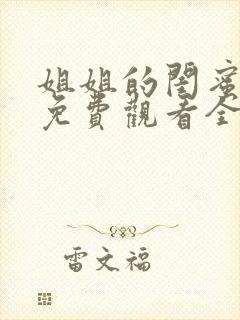 姐姐的閨蜜
免費觀看全
雷文福